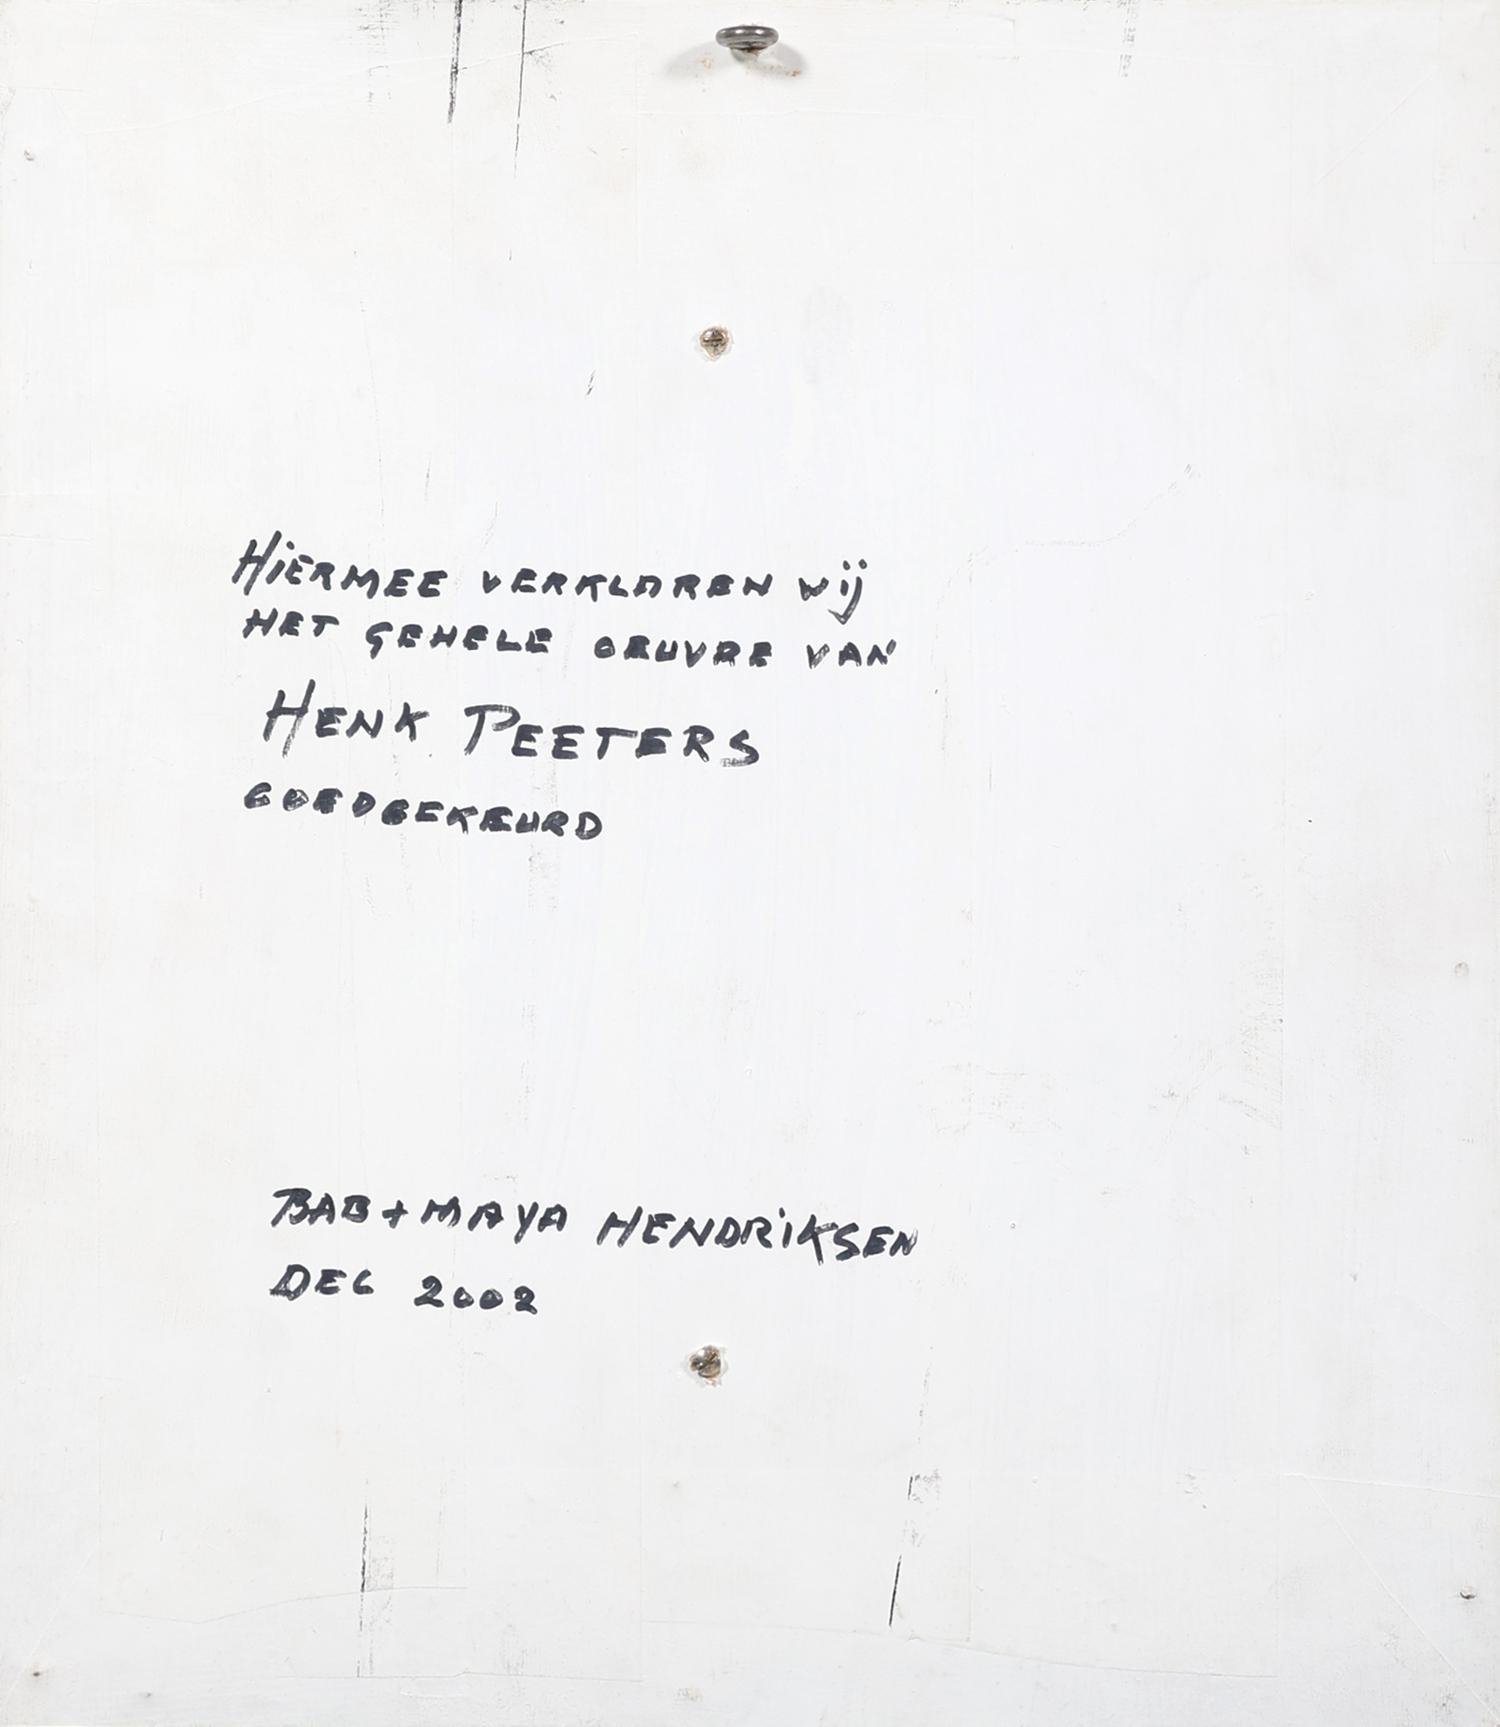 HiERMEE VERKLAREN wij
HET GEHELE OEUVRE VAN
HENK PEETERS
GOEDGEKEURD
BAB + MAYA HENDRiKSEN
DEC 2002